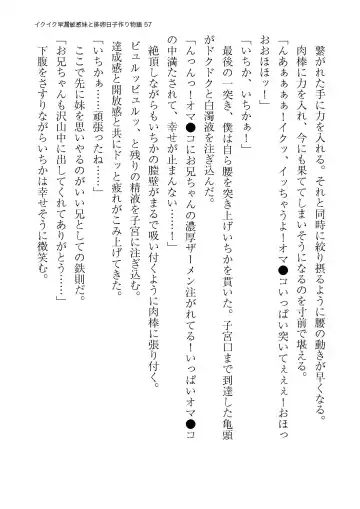 イクイク早漏敏感妹と排卵日子作り物語 57
繋がれた手に力を入れる。それと同時に絞り摂るように腰の動きが早くなる。
肉棒に力を入れ、今にも果ててしまいそうになるのを寸前で堪える。
「んあぁぁぁぁ！イクッ、イッちゃうよ！オマ●コいっぱい突いてぇぇぇ！おほっ
おおほほッ！」
「いちか、いちかぁ！」
最後の一突き、僕は自ら腰を突き上げいちかを貫いた。子宮口まで到達した亀頭
がドクドクと白濁液を注ぎ込んだ。
「んっんっ！オマ●コにお兄ちゃんの濃厚ザーメン注がれてる！いっぱいオマ●コ
の中満たされて、幸せが止まんない……！」
絶頂しながらもいちかの膣壁がまるで吸い付くように肉棒に張り付く。
ビュルッビュルッ、と残りの精液を子宮に注ぎ込む。
達成感と開放感と共にドッと疲れがこみ上げてきた。
「いちかぁ……頑張ったね……」
ここで先に妹を思いやるのがいい兄としての鉄則だ。
「お兄ちゃんも沢山中に出してくれてありがとう……」
下腹をさすりながらいちかは幸せそうに微笑む。